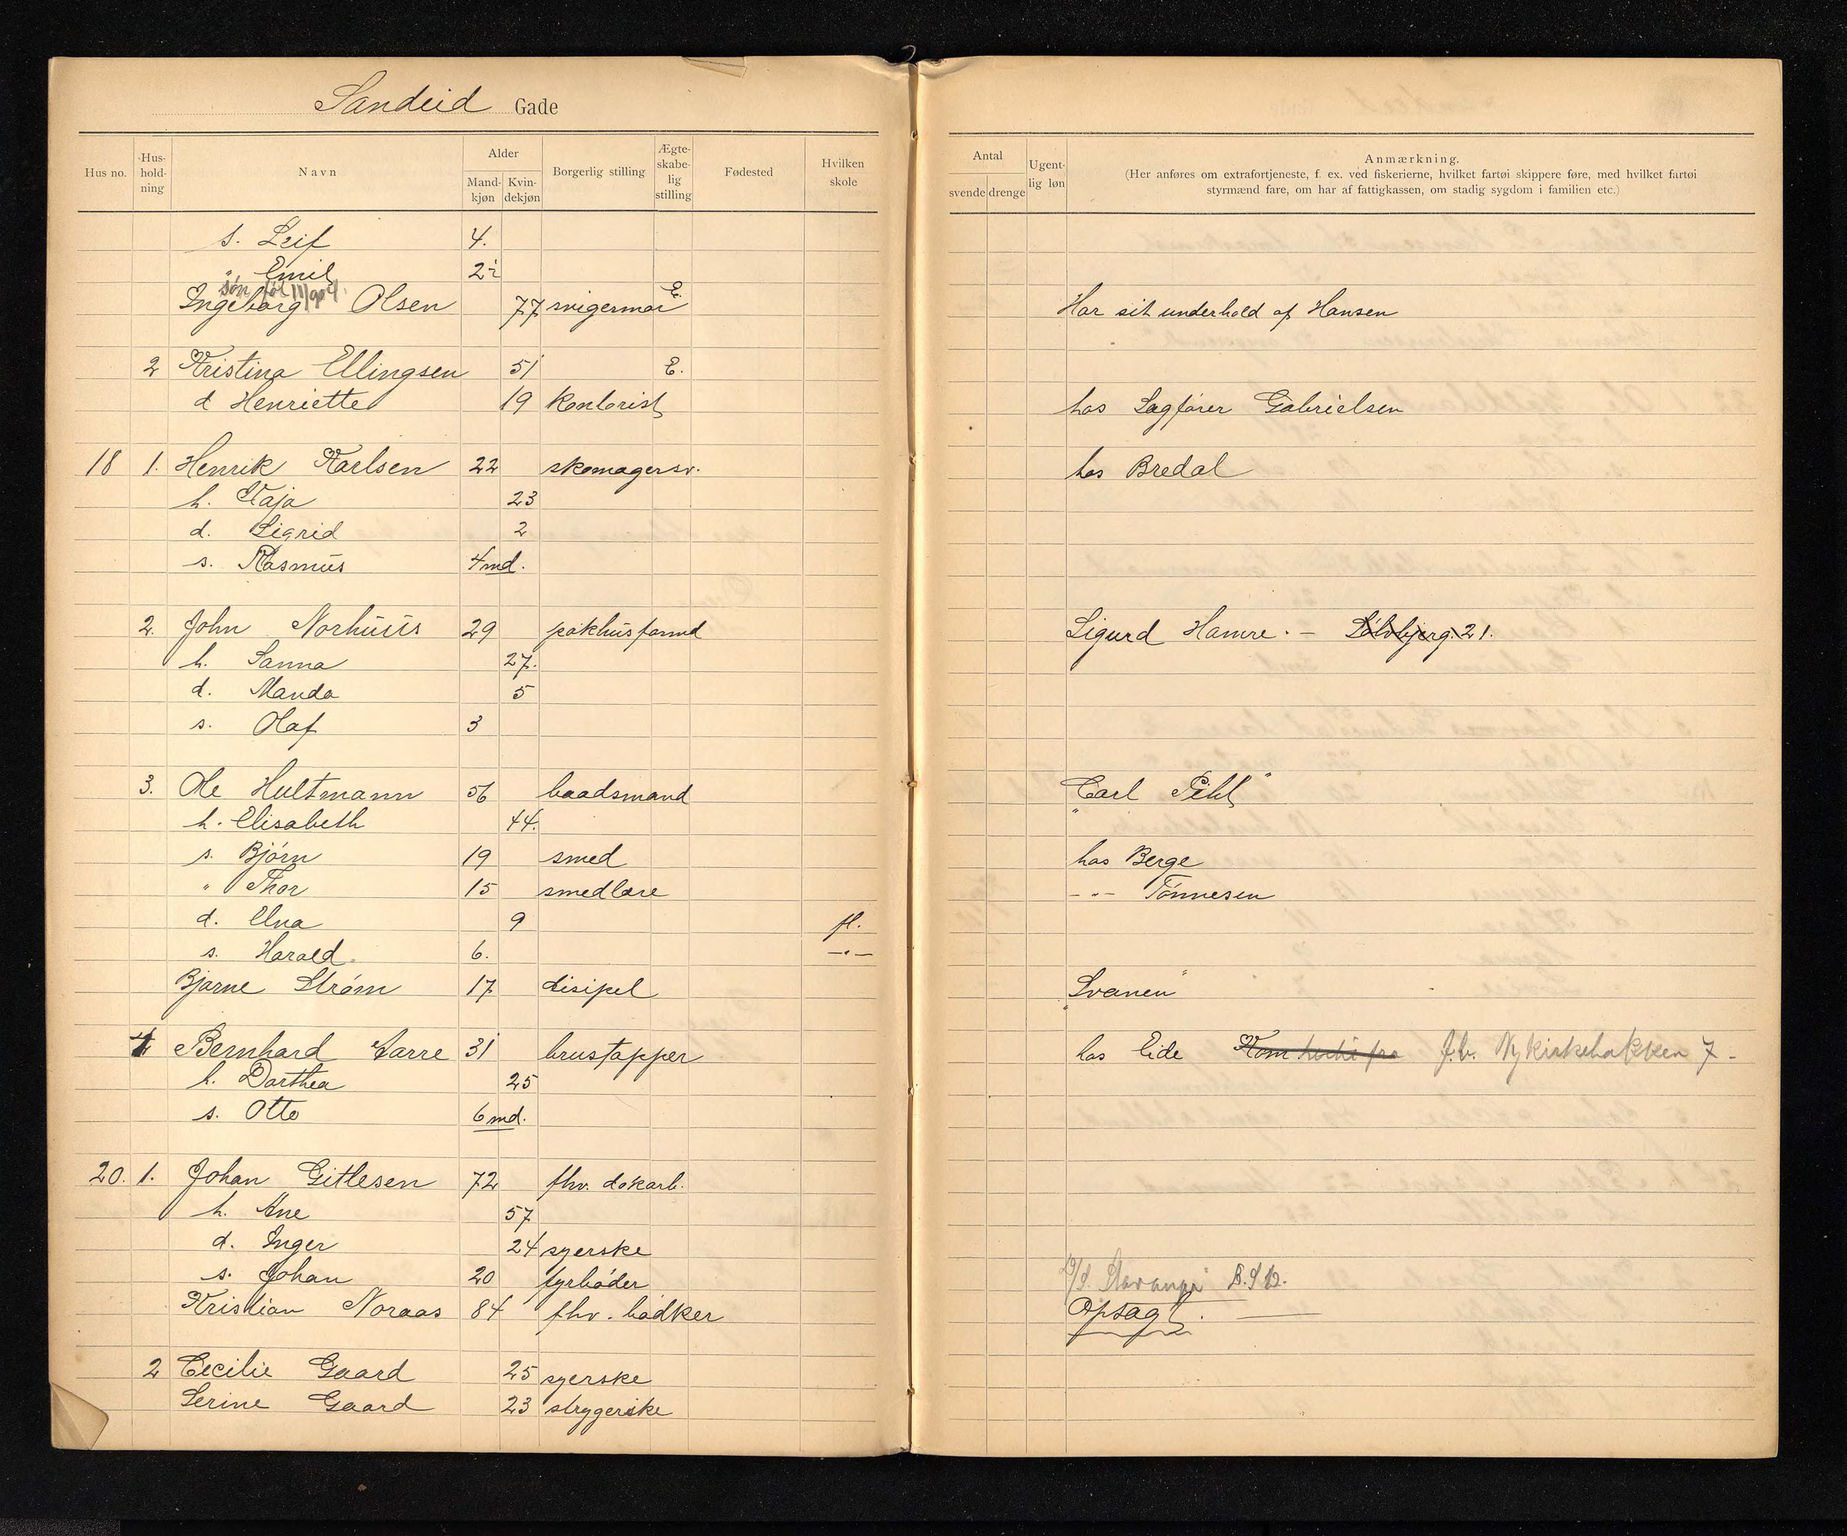 Sandeid Gade
Hus no. Hus-hold-ning Navn Alder Mand-kjøn Kvin-dekjøn Borgerlig stilling Ægte-skabe-lig stilling Fødested Hvilken skole Antal svende drenge Ugent-lig løn Anmærkning.
(Her anføres om extrafortjeneste, f. ex. ved fiskerierne, hvilket fartøi skippere føre, med hvilket fartøi
styrmænd fare, om har af fattigkassen, om stadig sygdom i familien etc.)
s. Leif 4.
" Emil 2½
søn født
Ingeborg Olsen 77 svigermor E. Har sit underhold af Hansen
2 Kristina Ellingsen 51 E.
d Henriette 19 kontorist hos Sagfører Gabrielsen
18 1. Henrik Karlsen 22 skomagersv. hos Bredal
h. Kaja 23
d. Sigrid 2
s. Rasmus 4 md.
2. John Norhuus 29 pakhusformd Sigurd Hamre. – Sølvbjerg. 21.
h. Sanna 27.
d. Manda 5
s. Olaf 3
3. Ole Hultmann 56 baadsmand "Carl Pihl"
h. Elisabeth 44.
s. Bjørn 19 smed hos Berge
" Thor 15 smedlære – " – Tønnesen
d. Elna 9 fl.
s. Harald. 6. – " –
Bjarne Strøm 17 disipel "Svanen"
4 Bernhard Aarre 31 brustapper hos Eide Kom hertil fra f.b. Nykirkebakken 7 –
h. Dorthea 25
s. Otto 6 md.
20. 1. Johan Gitlesen 72 fhv. dokarb.
h. Ane 57
d. Inger 24 syerske
s. Johan 20 fyrbøder D/S. Stavanger B.S.
Kristian Noraas 84 fhv. bødker Opsagt. –
2 Cecilie Gaard 25 syerske
Serine Gaard 23 strygerske